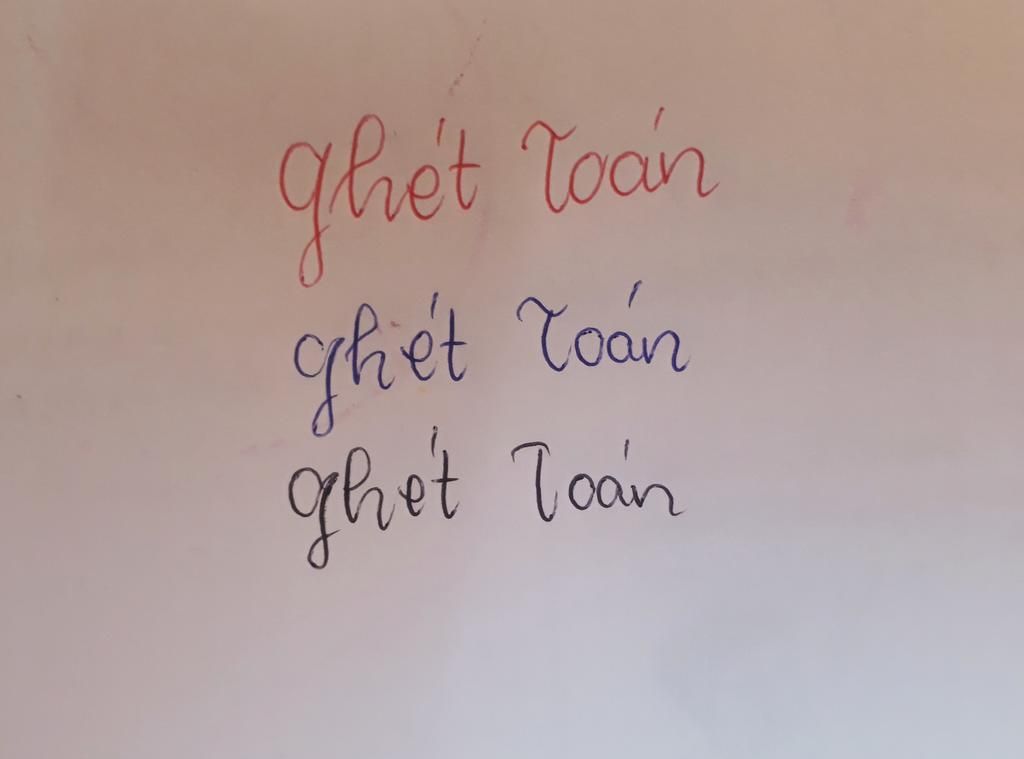 ghét Toán
ghét Toán
ghét Toán